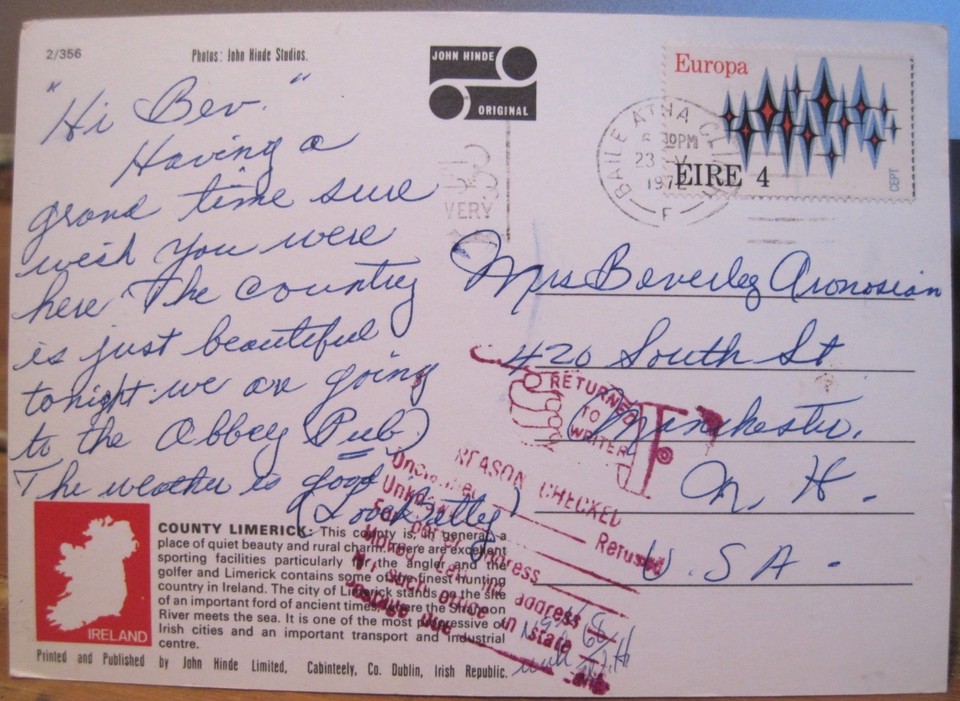 2/356
Photos: John Hinde Studios.
JOHN HINDE
ORIGINAL
Europa
EIRE 4
CEPT
BAILE ATHA
30PM
23
1972
F
VERY
"Hi Bev."
Having a
grand time sure
wish you were
here The country
is just beautiful
tonight we are going
to the Abbey (Pub)
The weather is good
(Love Betty)
Mrs Beverley Aronosian
420 South St
Manchester.
N. H.
U. S A.
RETURNED
TO
WRITER
REASON CHECKED
Unclaimed
Refused
Unknown
address
Moved, Left no address
No such office in state
Postage due
COUNTY LIMERICK: This county is, in general, a
place of quiet beauty and rural charm. There are excellent
sporting facilities particularly for the angler and the
golfer and Limerick contains some of the finest hunting
country in Ireland. The city of Limerick stands on the site
of an important ford of ancient times, where the Shannon
River meets the sea. It is one of the most progressive of
Irish cities and an important transport and industrial
centre.
IRELAND
Printed and Published by John Hinde Limited, Cabinteely, Co. Dublin, Irish Republic.